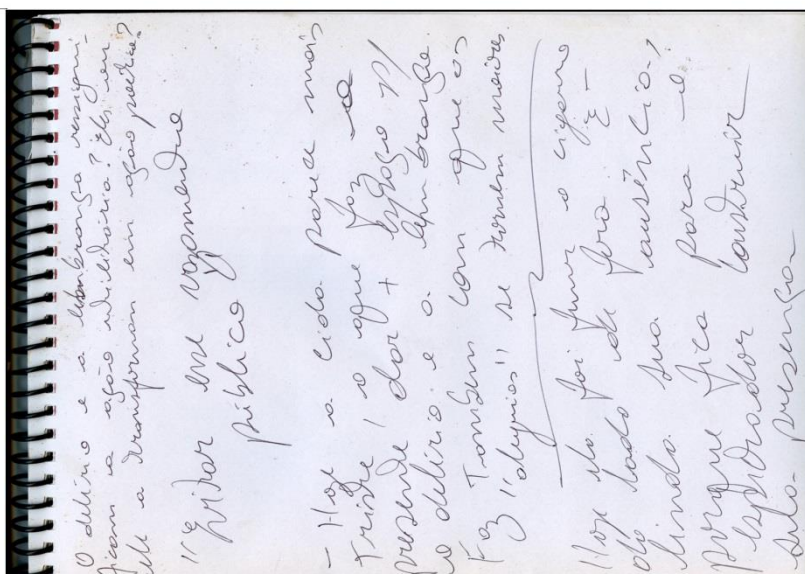 O delírio e a lembrança ressigni-
ficam a ação utilitária? Eles en
ele a transformam em ação poética?
"Evitar esse vazamento
público
- Hoje a cida parece mais
triste / o que faz
presente dor + espaço p/
o delírio e a lembrança.
Faz também com que os
3 "alegrias" se tornem maiores.
Hoje ela foi fumar o cigarro
do lado de fora. É
lindo sua ausência,
porque fica para o
espectador construir
sua presença.